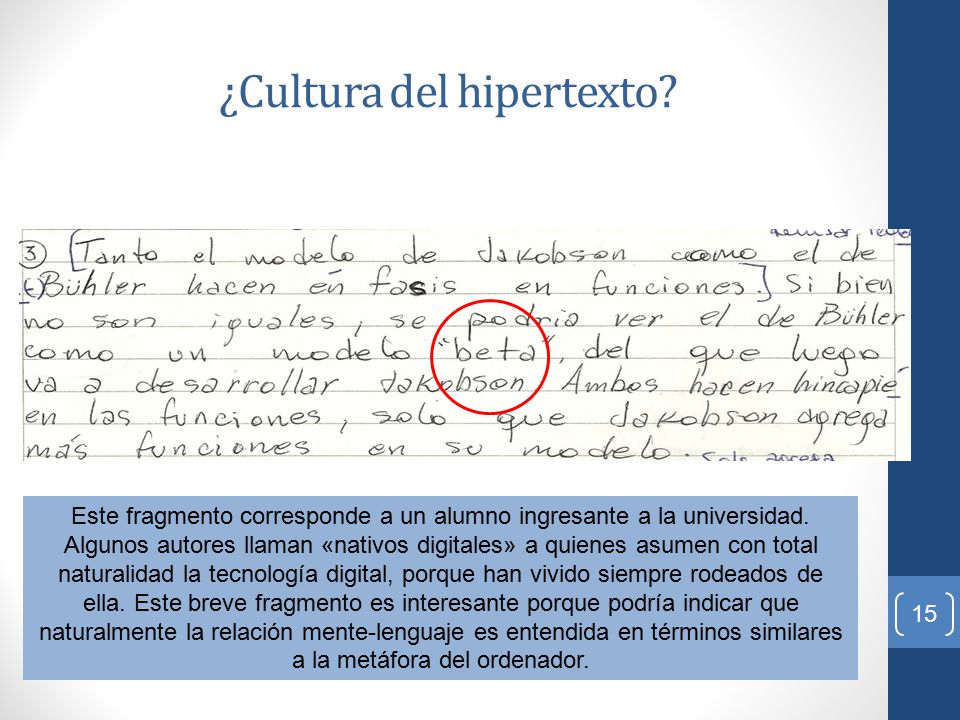 ¿Cultura del hipertexto?
③ [Tanto el modelo de Jakobson como el de
Bühler hacen en fasis en funciones.] Si bien
no son iguales, se podria ver el de Bühler
como un modelo "beta", del que luego
va a desarrollar Jakobson. Ambos hacen hincapié
en las funciones, solo que Jakobson agrega
más funciones en su modelo. Solo agrega
Este fragmento corresponde a un alumno ingresante a la universidad.
Algunos autores llaman «nativos digitales» a quienes asumen con total
naturalidad la tecnología digital, porque han vivido siempre rodeados de
ella. Este breve fragmento es interesante porque podría indicar que
naturalmente la relación mente-lenguaje es entendida en términos similares
a la metáfora del ordenador.
15